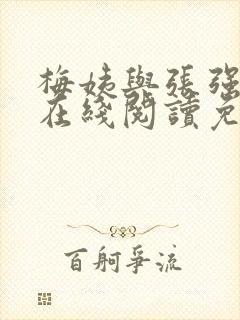 梅姨與張强
在綫閱讀免
百舸爭流